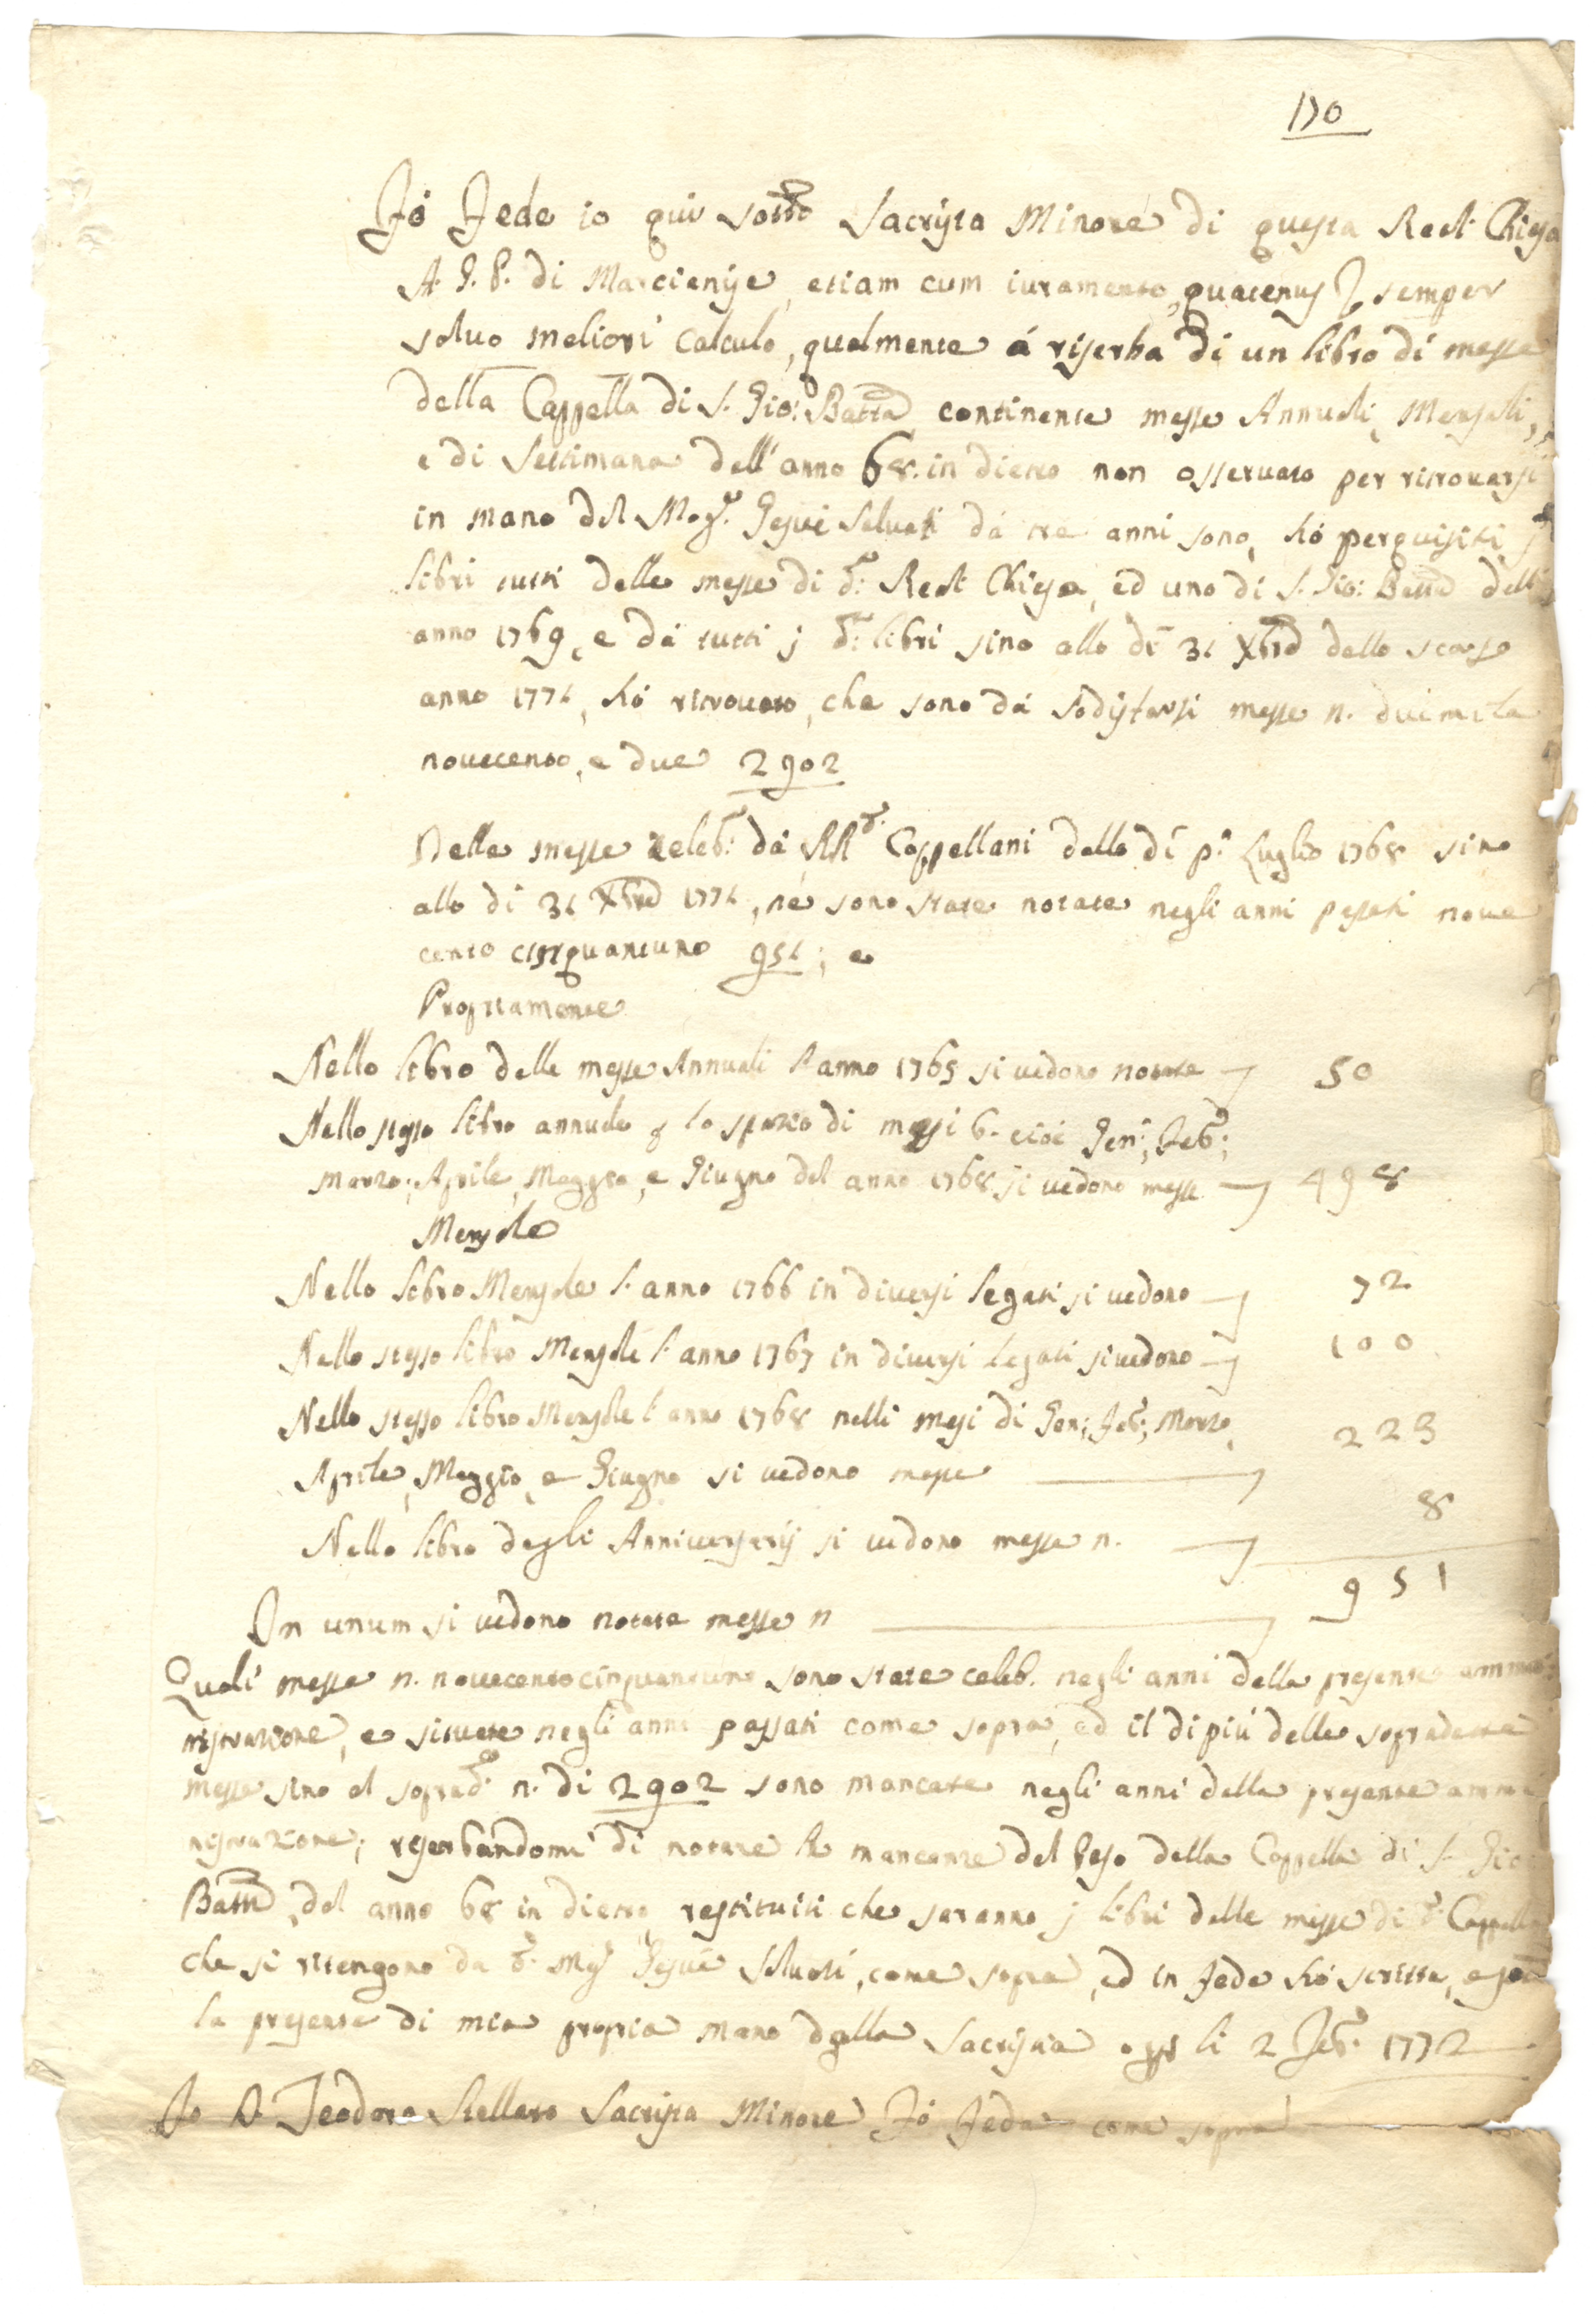 170
Fò Fede io qui sotto Sacrista Minore di questa Real Chiesa
A. G. P. di Marcianise, etiam cum iuramento, quatenus semper
salvo meliori calculo, qualmente à riserba di un libro di messe
della Cappella di S. Gio: Batta continente messe Annuali, Mensali,
e di Settimana dell'anno 68. in dietro non osservato per ritrovarsi
in mano del Mag.co Gesuè Salvati da tre anni sono, hò perquisiti j
libri tutti delle messe di d.a Real Chiesa, ed uno di S. Gio: Batta dell
anno 1769, e da tutti j d.i libri sino allo dì 31 Xbre dello scorso
anno 1771, hò ritrovato, che sono da sodisfarsi messe n. duimila
novecento, e due 2902
Delle messe celeb: da RR.di Cappellani dallo dì p.o Luglio 1768 sino
allo di 31 Xbre 1771, ne sono state notate negli anni passati nove
cento cinquantuno 951; e
Propriamente
Nello libro delle messe Annuali l'anno 1765 si vedono notate 50
Nello stesso libro annuale per lo spazio di mesi 6. cioè Gen:, Feb:;
Marzo; Aprile, Maggio, e Giugno del anno 1768 si vedono messe 498
Mensale
Nello libro Mensale l'anno 1766 in diversi legati si vedono 72
Nello stesso libro Mensale l'anno 1767 in diversi legati si vedono 100
Nello stesso libro Mensale l'anno 1768 nelli mesi di Gen:; Feb:; Marzo,
Aprile, Maggio, e Giugno si vedono messe 223
Nello libro degli Anniversarij si vedono messe n. 8
In unum si vedono notate messe n 951
Quali messe n. novecentocinquantuno sono state celeb. negli anni della presente ammi
nistrazione, e situate negli anni passati come sopra, ed il di più delle sopradette
messe sino al soprad.o n. di 2902 sono mancate negli anni della presente ammi
nistrazione; riserbandomi di notare le mancanze del Peso della Cappella di S. Gio
Batta, del anno 68 in dietro, restituiti che saranno j libri delle messe di d.a Cappella
che si ritengono da d.o Mag.co Gesuè Salvati, come sopra, ed in fede hò scritta,
la presente di mia propria mano dalla Sacristia oggi li 2 Feb.o 1772
Io D. Teodoro Stellato Sacrista Minore Fò Fede come sopra